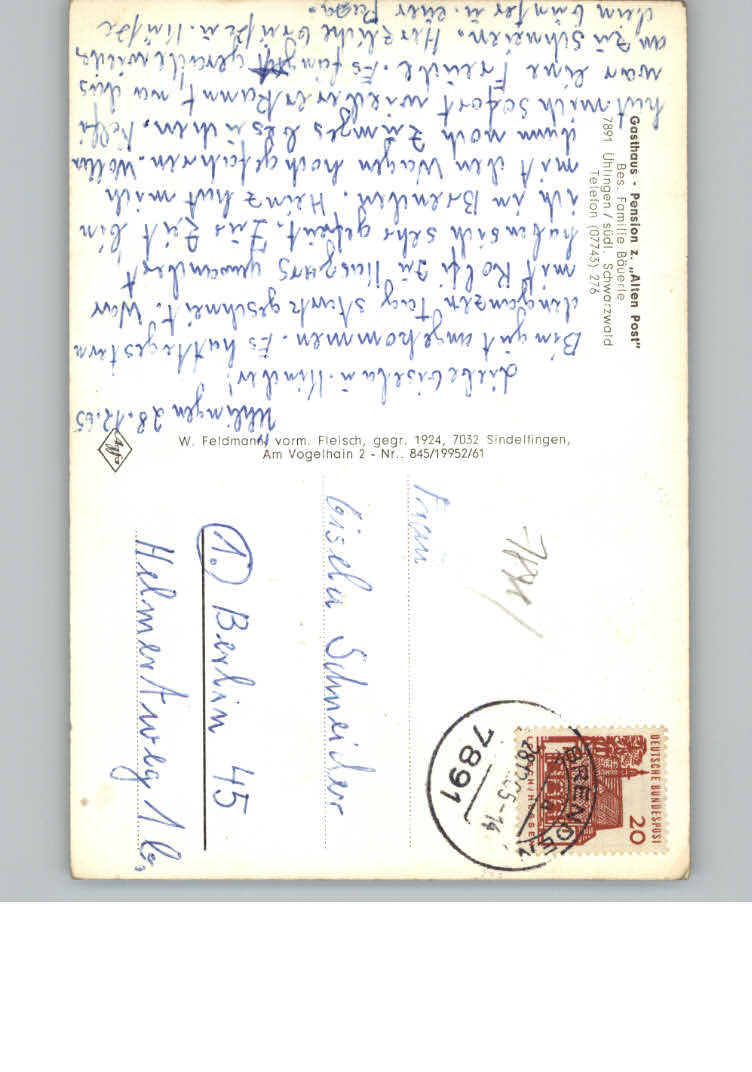 Gasthaus - Pension z. „Alten Post"
Bes. Familie Bäuerle
7891 Ühlingen / südl. Schwarzwald
Telefon (07743) 276
Ühlingen 28.12.65
Liebe Gisela u. Kinder!
Bin gut angekommen. Es hatte gestern
den ganzen Tag stark geschneit. War
mit Rolfi zu Hausgers gewandert
haben sich sehr gefreut. Zur Zeit bin
ich im Brenden. Heinz hat mich
mit den Wagen hochgefahren. Wollen
dann noch Zumges besuchen. Rolfi
hat mich sofort wieder erkannt, na das
war eine Freude. Es fängt gerade wieder
an zu schneien. Herzliche Grüße u. Küsse
dein Günter u. euer Papa.
W. Feldmann vorm. Fleisch, gegr. 1924, 7032 Sindelfingen,
Am Vogelhain 2 - Nr.. 845/19952/61
Agfa
Frau
Gisela Schneider
(1.) Berlin 45
Helmertweg 1b.
DEUTSCHE BUNDESPOST
20
LORSCH/HESSEN
BRENDEN
28.12.65-14
7891